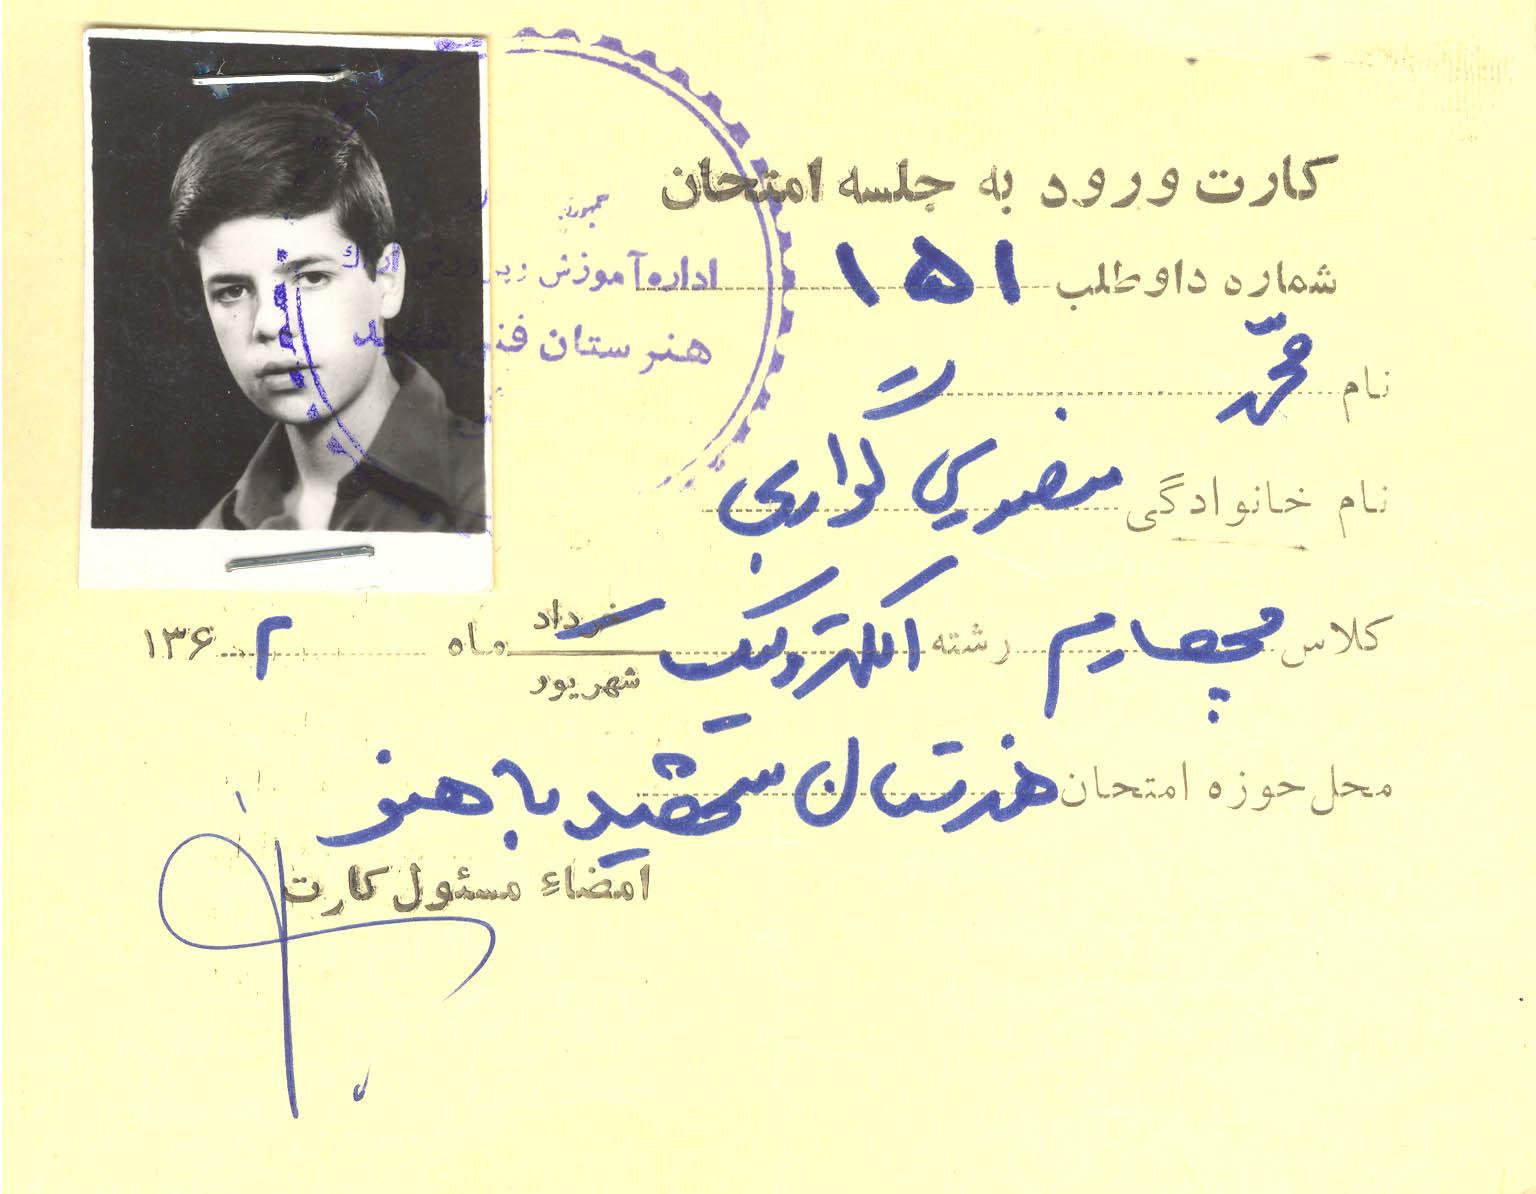 کارت ورود به جلسه امتحان
شماره داوطلب ۱۵۱
نام محمد
نام خانوادگی منصوری گوارجی
کلاس چهارم رشته الکترونیک خرداد ماه ۱۳۶۲
شهریور
محل حوزه امتحان هنرستان شهید باهنر
امضاء مسئول کارت
اداره آموزش وپرورش اراک
هنرستان فنی شهید